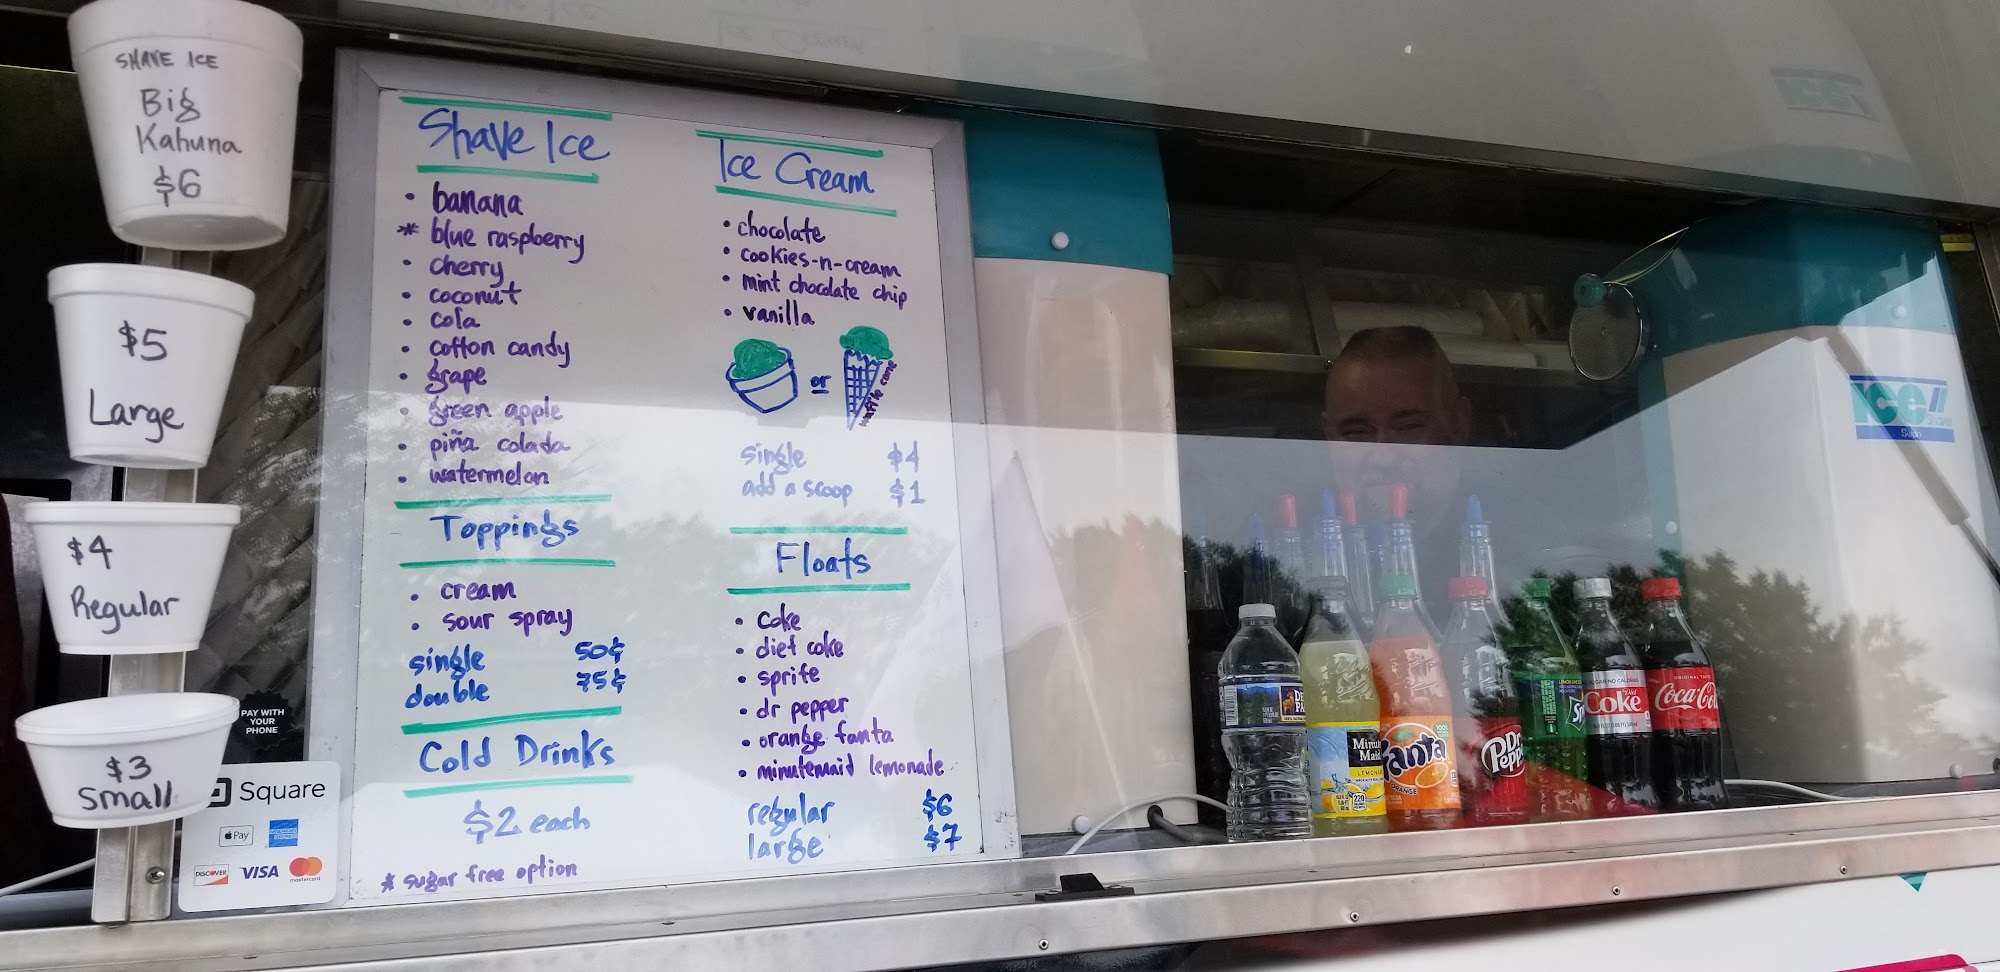 SHAVE ICE
Big
Kahuna
$6
$5
Large
$4
Regular
$3
Small
PAY WITH
YOUR
PHONE
Square
Pay
DISCOVER
VISA
mastercard
Shave Ice
• banana
* blue raspberry
• cherry
• coconut
• cola
• cotton candy
• grape
• green apple
• piña colada
• watermelon
Toppings
• cream
• sour spray
single 50¢
double 75¢
Cold Drinks
$2 each
* sugar free option
Ice Cream
• chocolate
• cookies-n-cream
• mint chocolate chip
• vanilla
or
waffle cone
single $4
add a scoop $1
Floats
• coke
• diet coke
• sprite
• dr pepper
• orange fanta
• minutemaid lemonade
regular $6
large $7
Minute
Maid
LEMONADE
Fanta
ORANGE
Dr
Pepper
Diet
Coke
ORIGINAL TASTE
Coca-Cola
ICE
Shaver